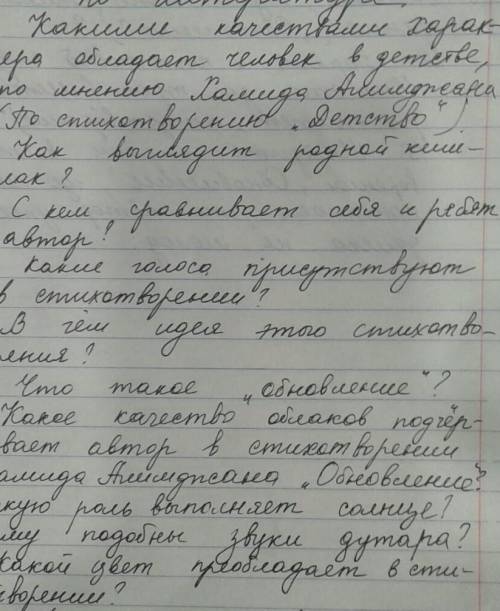 по литературе.
Какими качествами харак-
ера обладает человек в детстве,
по мнению Хамида Алимджана
(По стихотворению „Детство")?
Как выглядит родной киш-
лак?
С кем сравнивает себя и ребят
автор?
Какие голоса присутствуют
в стихотворении?
В чём идея этого стихотво-
ения?
Что такое „обновление"?
Какое качество облаков подчёр-
вает автор в стихотворении
амида Алимджана „Обновление"?
кую роль выполняет солнце?
му подобны звуки дутара?
Какой цвет преобладает в сти-
творении?